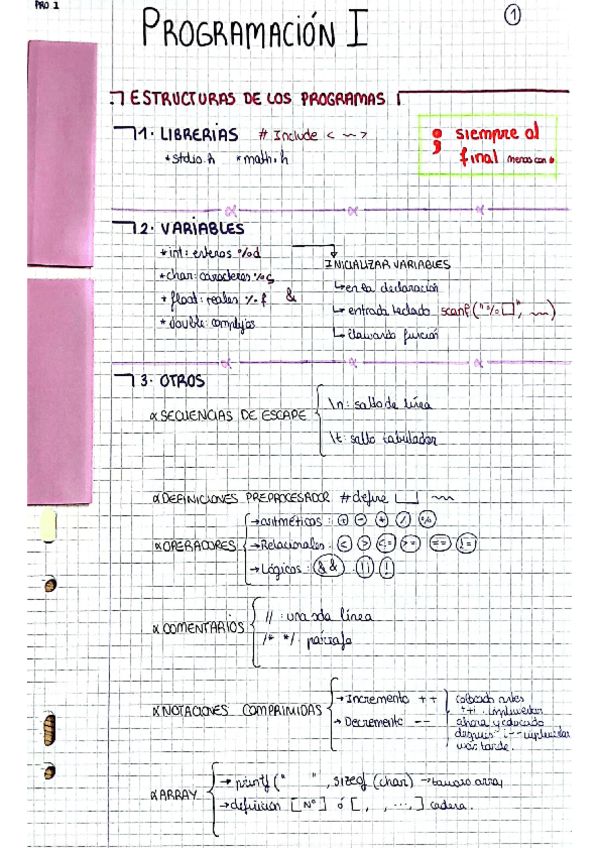 PRO 1
PROGRAMACIÓN I
1
ESTRUCTURAS DE LOS PROGRAMAS
1. LIBRERIAS # Include < >
* stdio.h * math.h
; siempre al
final menos con #
2. VARIABLES
* int: enteros %d
* char: caracteres %c
* float: reales %f &
* double: complejos
INICIALIZAR VARIABLES
en la declaración
entrada teclado scanf ("%□", )
llamando función
3. OTROS
α SECUENCIAS DE ESCAPE
\n: salto de línea
\t: salto tabulador
α DEFINICIONES PREPROCESADOR #define
α OPERADORES
→ aritméticos: + - * / %
→ Relacionales: < > <= >= == !=
→ Lógicos: && || !
α COMENTARIOS
// : una sola línea
/* */ : párrafo
α NOTACIONES COMPRIMIDAS
→ Incremento ++
→ Decremento --
colocado antes
++i implementar
ahora y colocado
después i-- implementar
más tarde.
α ARRAY
→ printf (" ", sizeof (char) → tamaño array
→ definición [Nº] ó [ , , ..., ] cadena.